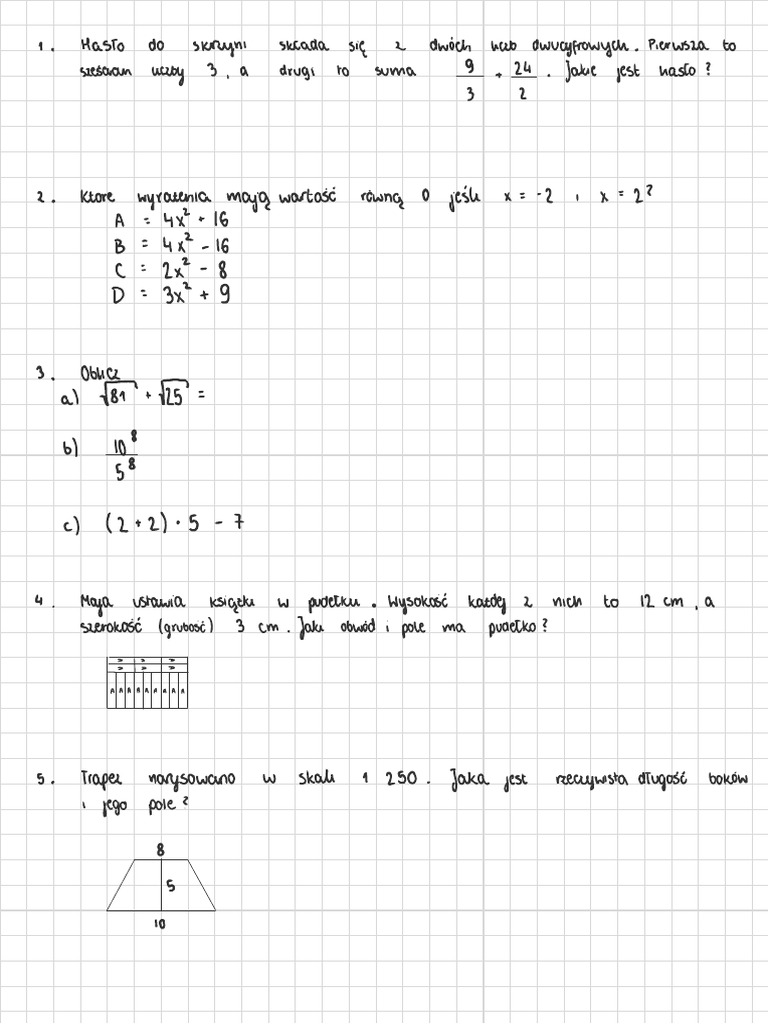 1. Hasło do skrzyni składa się z dwóch liczb dwucyfrowych. Pierwsza to
sześcian liczby 3, a drugi to suma 9/3 + 24/2. Jakie jest hasło?
2. Które wyrażenia mają wartość równą 0 jeśli x = -2 i x = 2?
A = 4x² + 16
B = 4x² - 16
C = 2x² - 8
D = 3x² + 9
3. Oblicz
a) √81 + √25 =
b) 10⁸/5⁸
c) (2 + 2) · 5 - 7
4. Maja ustawia książki w pudełku. Wysokość każdej z nich to 12 cm, a
szerokość (grubość) 3 cm. Jaki obwód i pole ma pudełko?
A A A
A A A
A A A A A A A A A
5. Trapez narysowano w skali 1 250. Jaka jest rzeczywista długość boków
i jego pole?
8
5
10